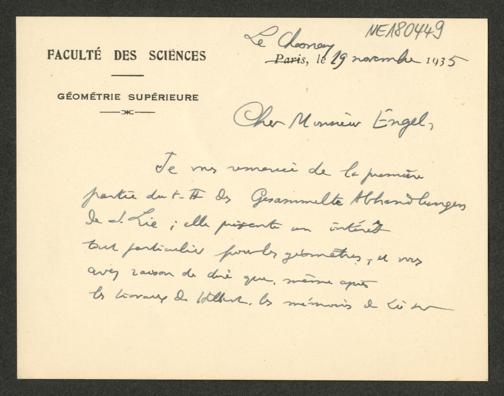 NE180449
Le Chesnay
FACULTÉ DES SCIENCES
Paris, le 29 novembre 1935
GÉOMÉTRIE SUPÉRIEURE
Cher Monsieur Engel,
Je vous remercie de la première
partie du t. II des Gesammelte Abhandlungen
de S. Lie ; elle présente un intérêt
tout particulier pour les géomètres, et vous
avez raison de dire que, même après
les travaux de Hilbert, les mémoires de Lie sur